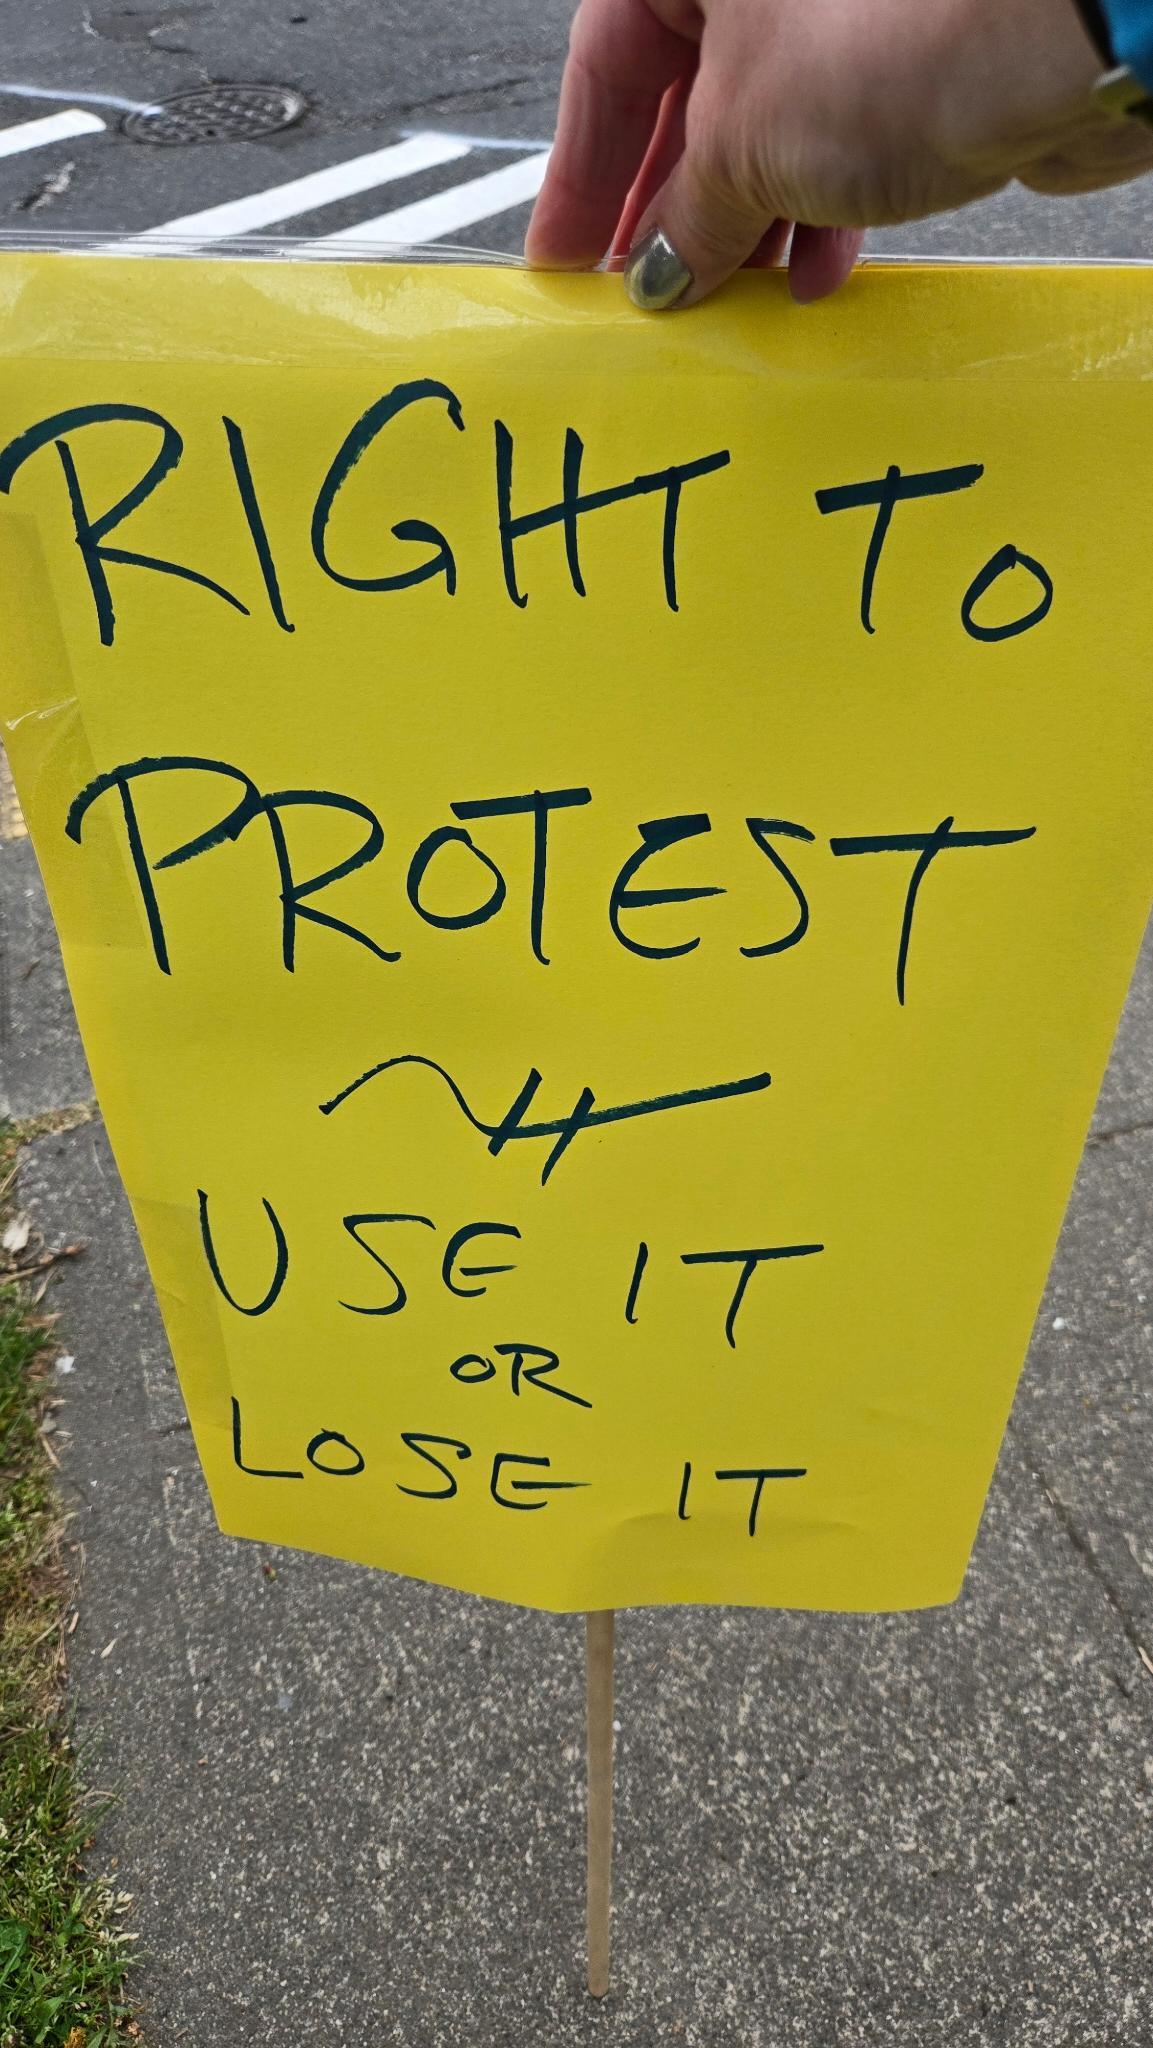 RIGHT TO
PROTEST
USE IT
OR
LOSE IT